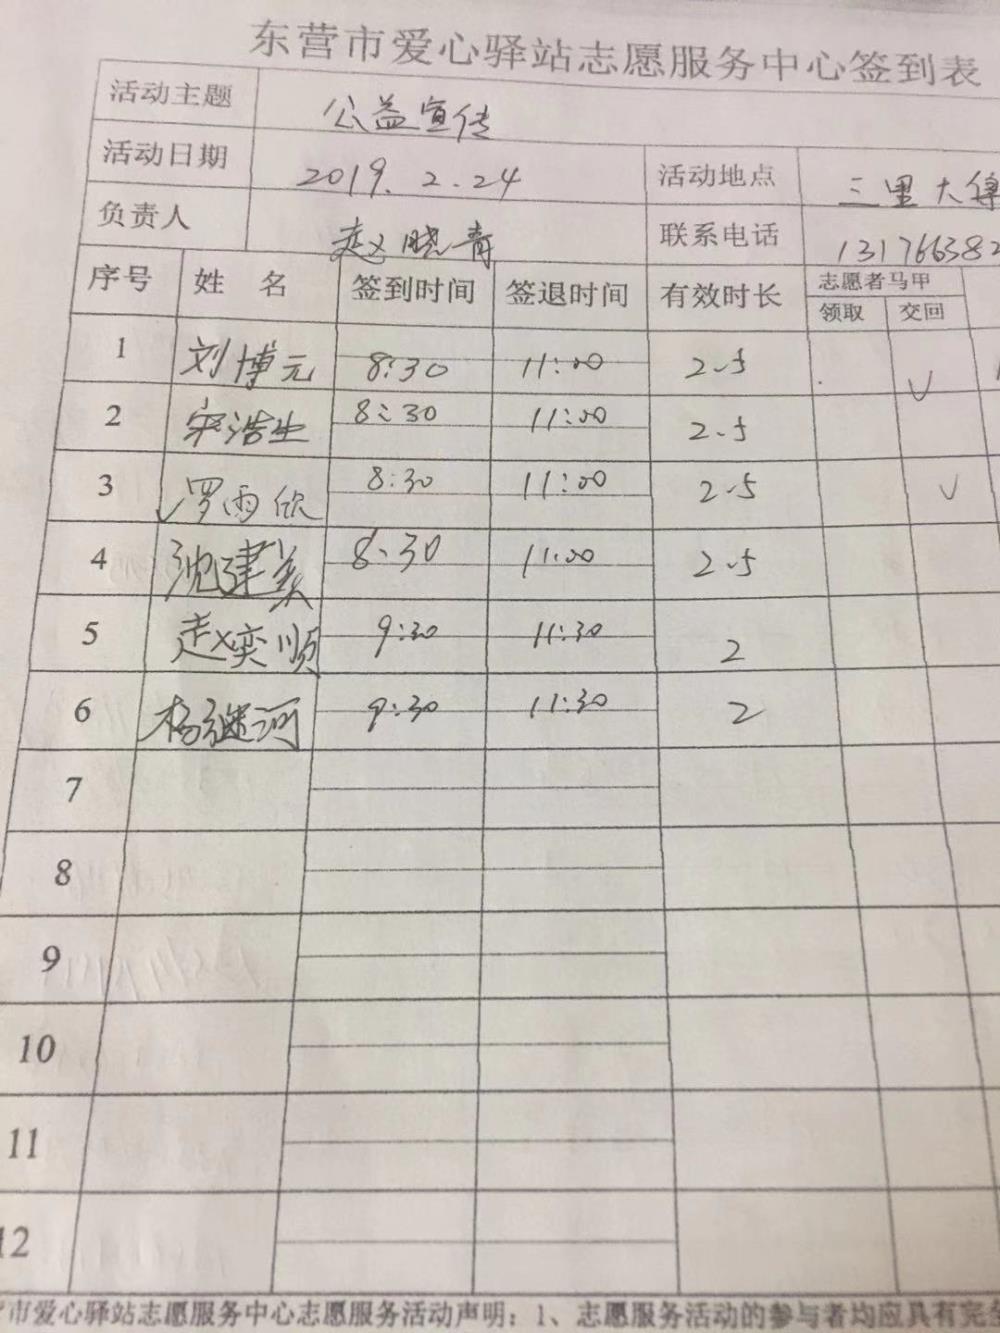 东营市爱心驿站志愿服务中心签到表
活动主题 公益宣传
活动日期 2019.2.24 活动地点 三里大
负责人 赵晓青 联系电话 131766382
序号 姓 名 签到时间 签退时间 有效时长 志愿者马甲
领取 交回
1 刘博元 8:30 11:00 2.5 √
2 宋浩生 8:30 11:00 2.5
3 罗雨欣 8:30 11:00 2.5 √
4 沈建美 8:30 11:00 2.5
5 赵奕顺 9:30 11:30 2
6 杨继河 9:30 11:30 2
7
8
9
10
11
12
市爱心驿站志愿服务中心志愿服务活动声明：1、志愿服务活动的参与者均应具有完全